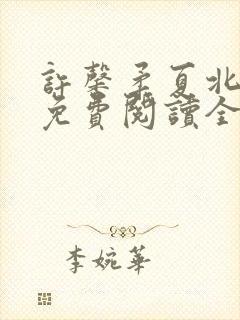 許馨矛夏北
免費閱讀全
李婉華